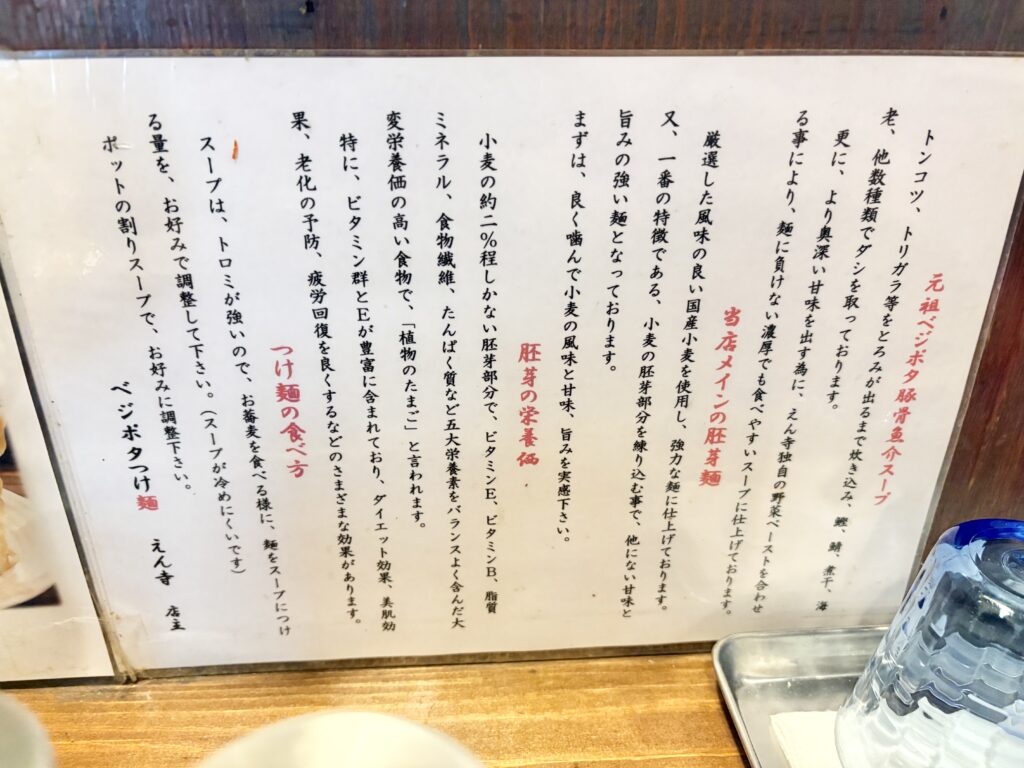 元祖ベジポタ豚骨魚介スープ
トンコツ、トリガラ等をとろみが出るまで炊き込み、鰹、鯖、煮干、海
老、他数種類でダシを取っております。
更に、より奥深い甘味を出す為に、えん寺独自の野菜ペーストを合わせ
る事により、麺に負けない濃厚でも食べやすいスープに仕上げております。
当店メインの胚芽麺
厳選した風味の良い国産小麦を使用し、強力な麺に仕上げております。
又、一番の特徴である、小麦の胚芽部分を練り込む事で、他にない甘味と
旨みの強い麺となっております。
まずは、良く噛んで小麦の風味と甘味、旨みを実感下さい。
胚芽の栄養価
小麦の約二%程しかない胚芽部分で、ビタミンE、ビタミンB、脂質
ミネラル、食物繊維、たんぱく質など五大栄養素をバランスよく含んだ大
変栄養価の高い食物で、「植物のたまご」と言われます。
特に、ビタミン群とEが豊富に含まれており、ダイエット効果、美肌効
果、老化の予防、疲労回復を良くするなどのさまざまな効果があります。
つけ麺の食べ方
スープは、トロミが強いので、お蕎麦を食べる様に、麺をスープにつけ
る量を、お好みで調整して下さい。(スープが冷めにくいです)
ポットの割りスープで、お好みに調整下さい。
ベジポタつけ麺 えん寺 店主